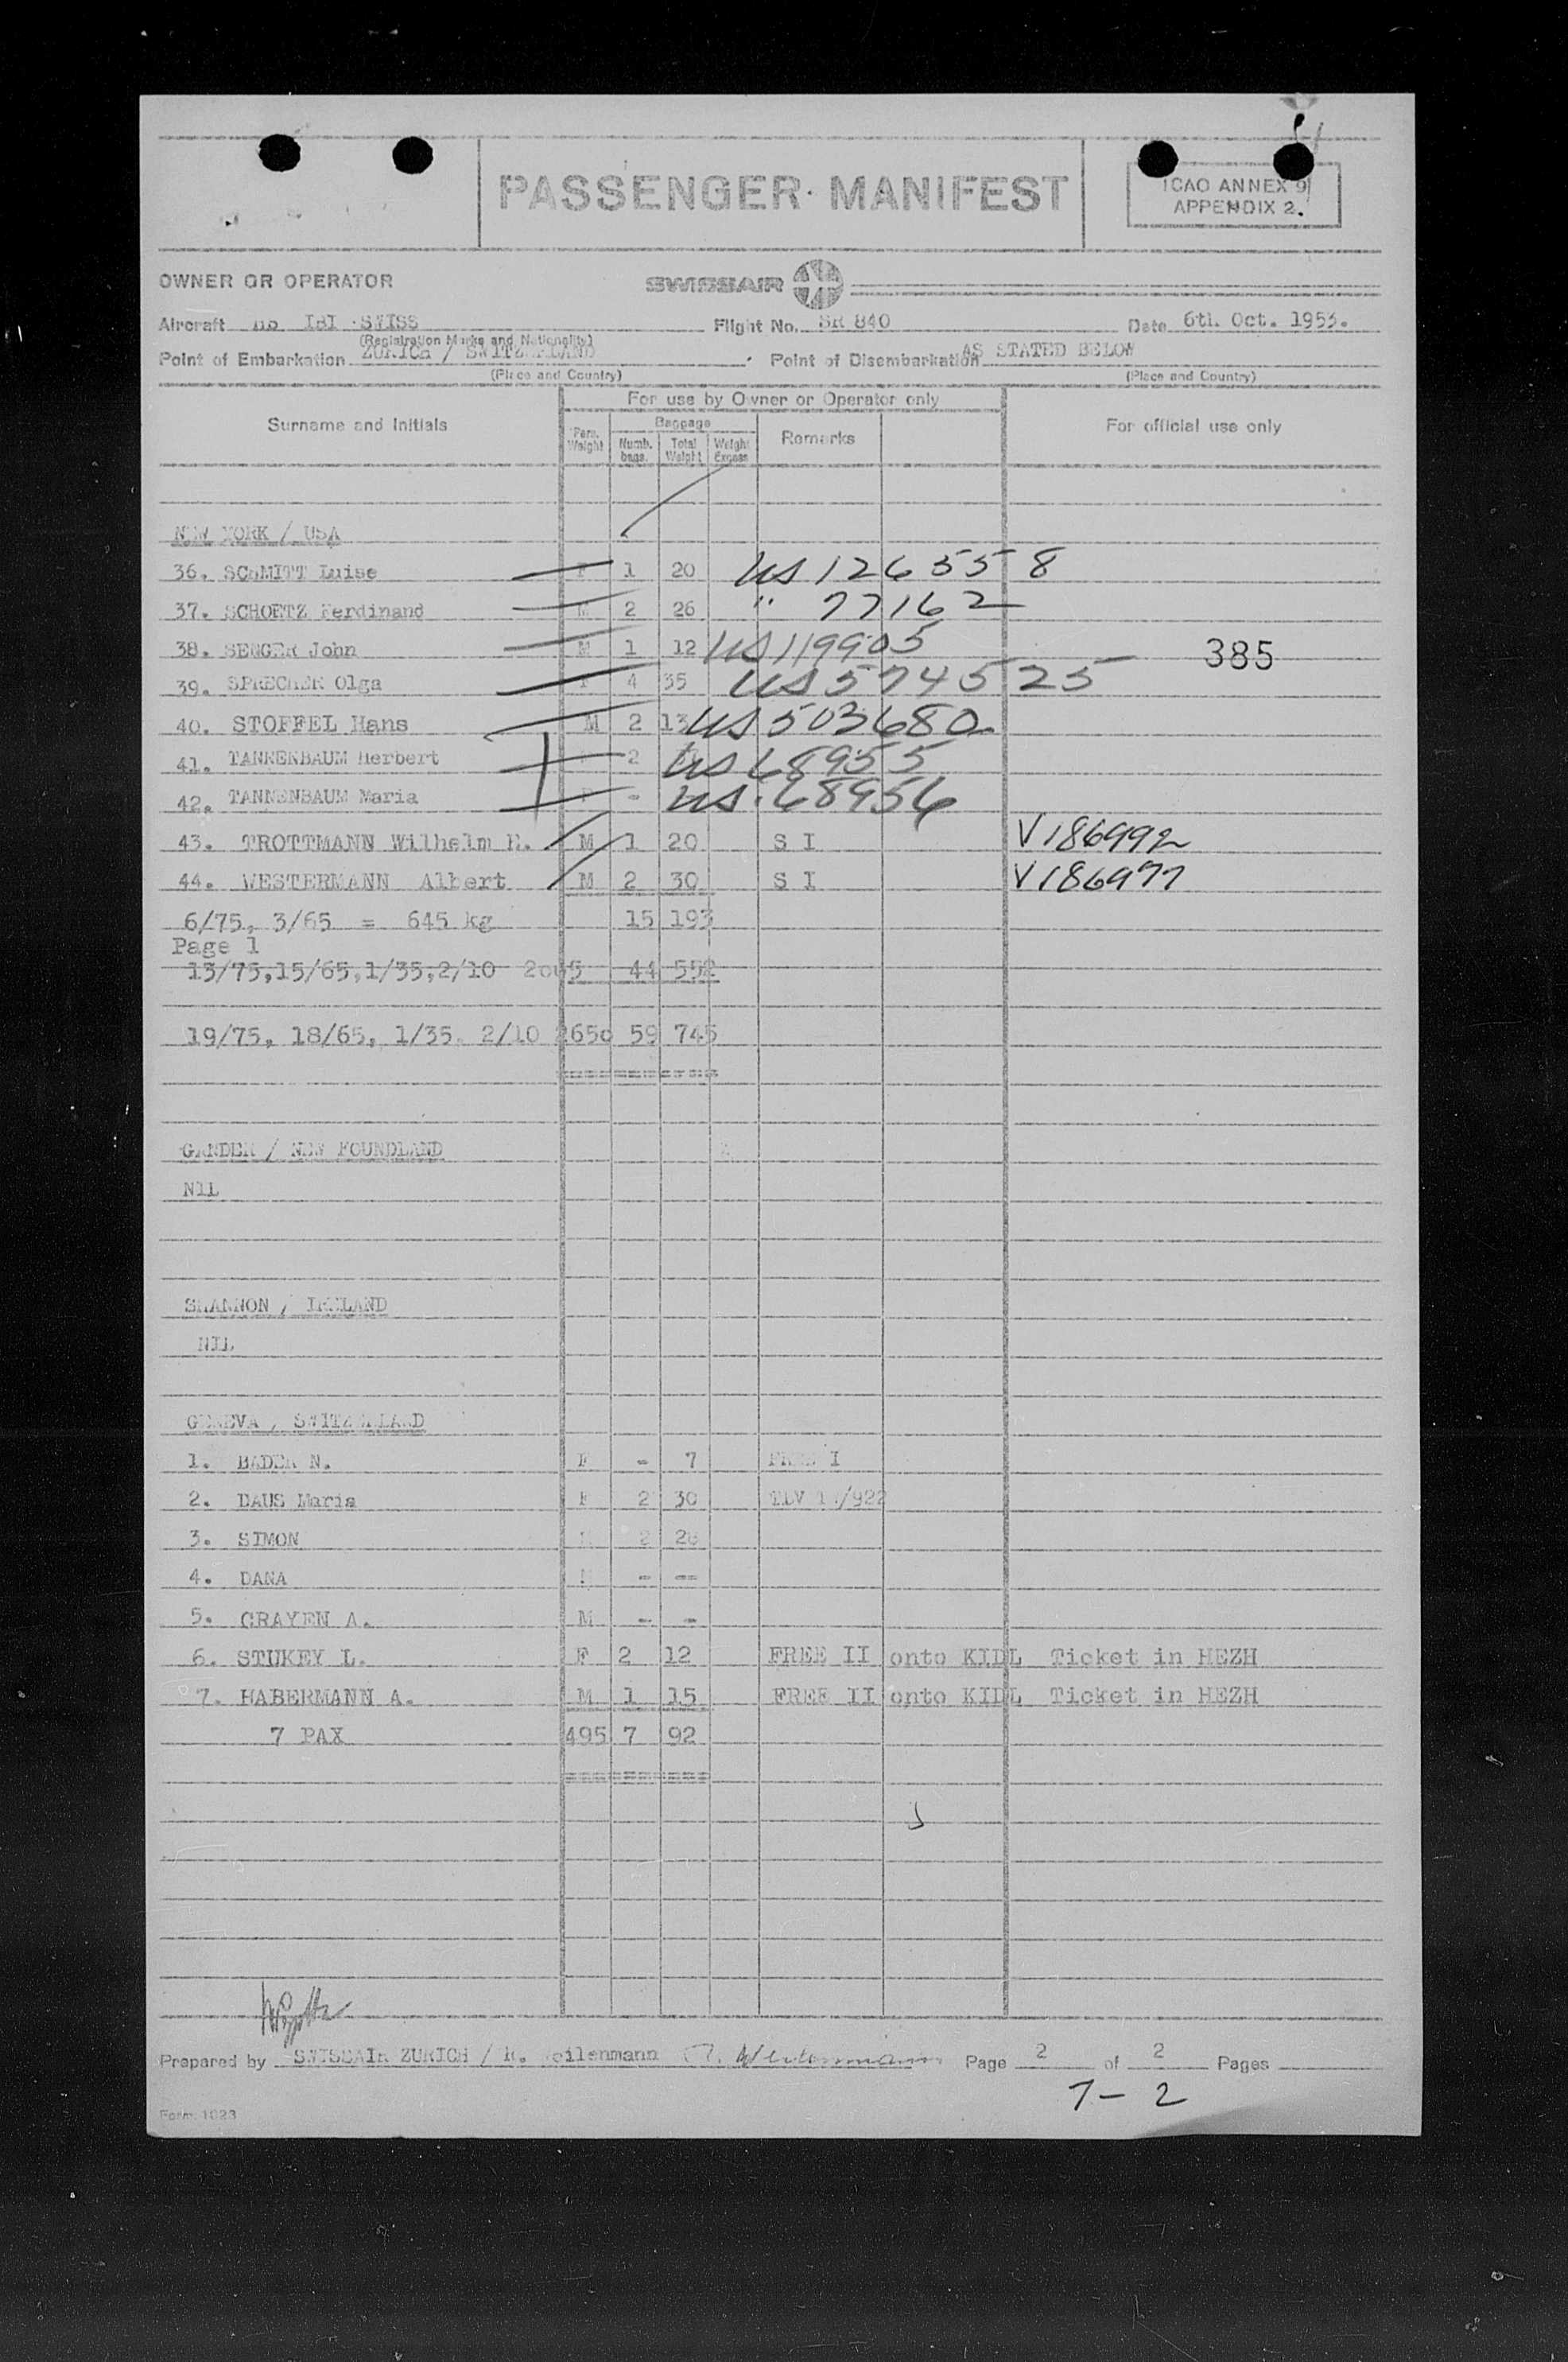 PASSENGER MANIFEST
ICAO ANNEX 9
APPENDIX 2.
OWNER OR OPERATOR SWISSAIR
Aircraft HB IBI SWISS Flight No. SR 840 Date 6th Oct. 1953.
(Registration Marks and Nationality)
Point of Embarkation ZURICH / SWITZERLAND Point of Disembarkation AS STATED BELOW
(Place and Country) (Place and Country)
For use by Owner or Operator only
Surname and Initials Pers. Weight Baggage Numb. bags. Total Weight Weight Excess Remarks For official use only
NEW YORK / USA
36. SCHMITT Luise F 1 20 US 1265558
37. SCHOETZ Ferdinand M 2 26 " 77162
38. SENGER John M 1 12 US 119905
385
39. SPRECHER Olga F 4 35 US 574525
40. STOFFEL Hans M 2 13 US 503680
41. TANNENBAUM Herbert 2 US 68955
42. TANNENBAUM Maria F - US. 68956
43. TROTTMANN Wilhelm H. M 1 20 S I V186992
44. WESTERMANN Albert M 2 30 S I V186977
6/75, 3/65 = 645 kg 15 193
Page 1
13/75,15/65,1/35,2/10 2005 44 552
19/75, 18/65, 1/35, 2/10 2650 59 745
GANDER / NEW FOUNDLAND
NIL
SHANNON / IRELAND
NIL
GENEVA / SWITZERLAND
1. BADER N. F - 7 FREE I
2. DAUS Maria F 2 30 TLV /922
3. SIMON 2 28
4. DANA M - --
5. CRAYEN A. M - -
6. STUKEY L. F 2 12 FREE II onto KIDL Ticket in HEZH
7. HABERMANN A. M 1 15 FREE II onto KIDL Ticket in HEZH
7 PAX 495 7 92
Prepared by SWISSAIR ZURICH / R. Weilenmann Page 2 of 2 Pages
7-2
Form 1023